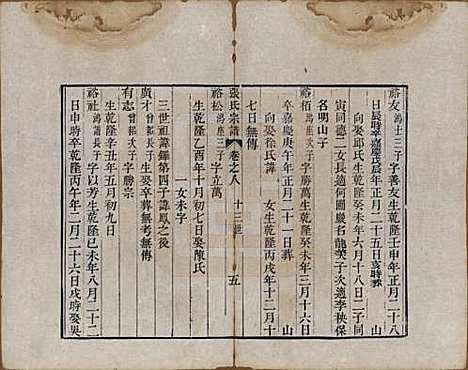 裕友鴻士三子字善友生乾隆壬申年正月二十八
日辰時卒嘉慶戊辰年正月二十五日亥時葬　山
向娶邱氏生乾隆癸未年六月十八日二子同
寅同德二女長適何圖慶名龍美子次適李秧保
名明山子
裕栢鴻座次子字勝萬生乾隆癸未年三月十六日
卒嘉慶庚午年正月二十一日葬　山
向娶徐氏諱　女生乾隆丙戌年十二月十
七日無傳
張氏宗譜　卷之八　十三世　五
裕松鴻座三子字立萬
生乾隆乙酉年十月初七日娶陳氏
一女未字
三世祖諱鐸第四子諱鳳之後
廣才曾韜次子生娶卒葬無考無傳
有志曾韜次子字勝宗
生乾隆辛丑年五月初九日
裕社鴻諧長子字以芳生乾隆己未年八月二十二
日申時卒乾隆丙午年二月二十六日戌時娶吳